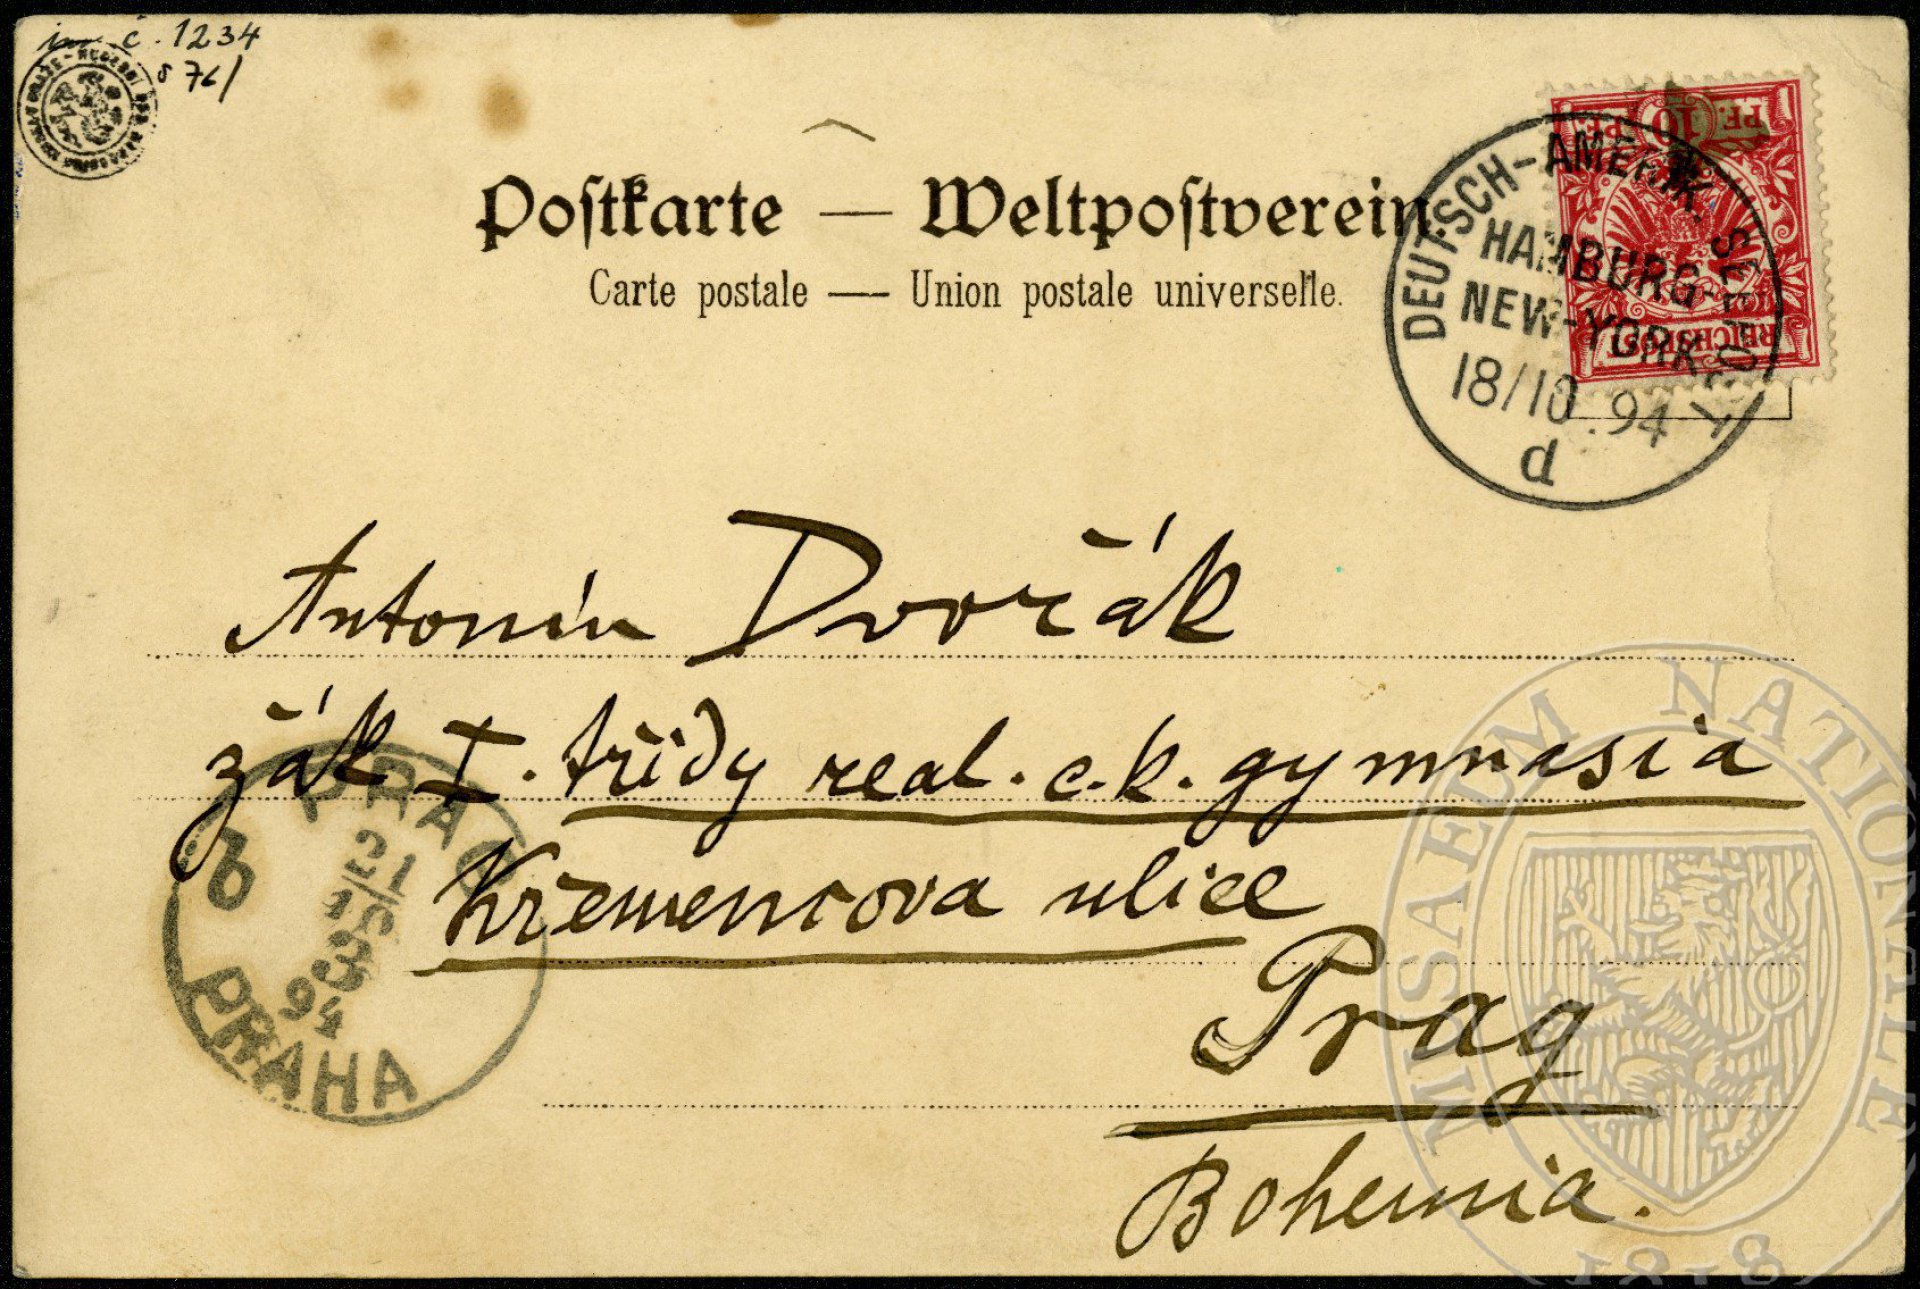 č. 1234
Postkarte — Weltpostverein.
Carte postale — Union postale universelle.
PF. 10 PF.
REICHSPOST
DEUTSCH-AMERIK. SEEPOST
HAMBURG-
NEW-YORK
18/10.94
d
Antonín Dvořák
žák I. třídy real. c.k. gymnasia
Křemencova ulice
Prag
Bohemia.
PRAG
PRAHA
94
MUSAEUM NATIONALE
1818